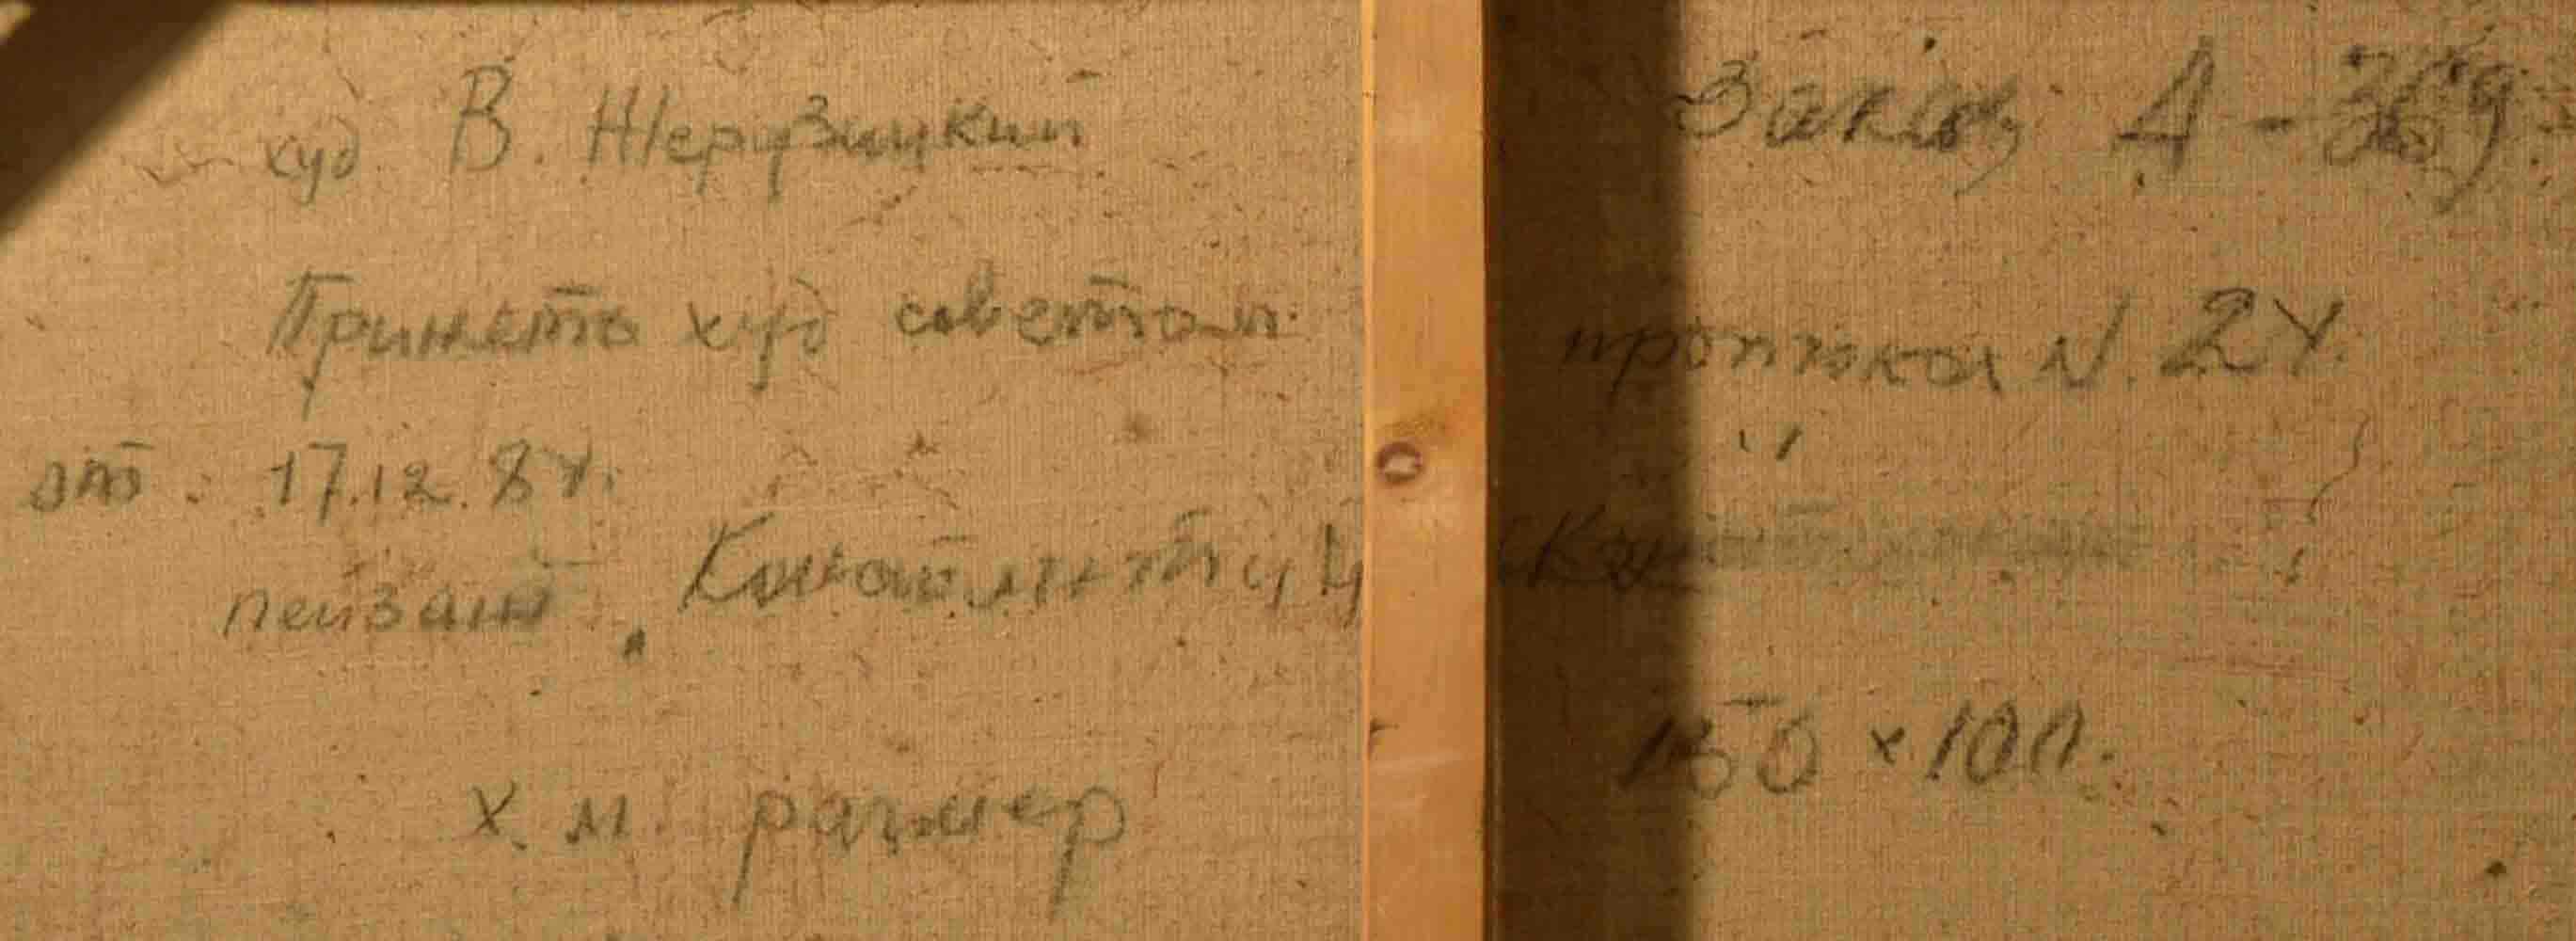 худ. В. Жерузицкий Заказ Д -
Принято худ советом протокол N. 24.
от. 17.12.84.
пейзаж
х. м. размер 150 × 100.